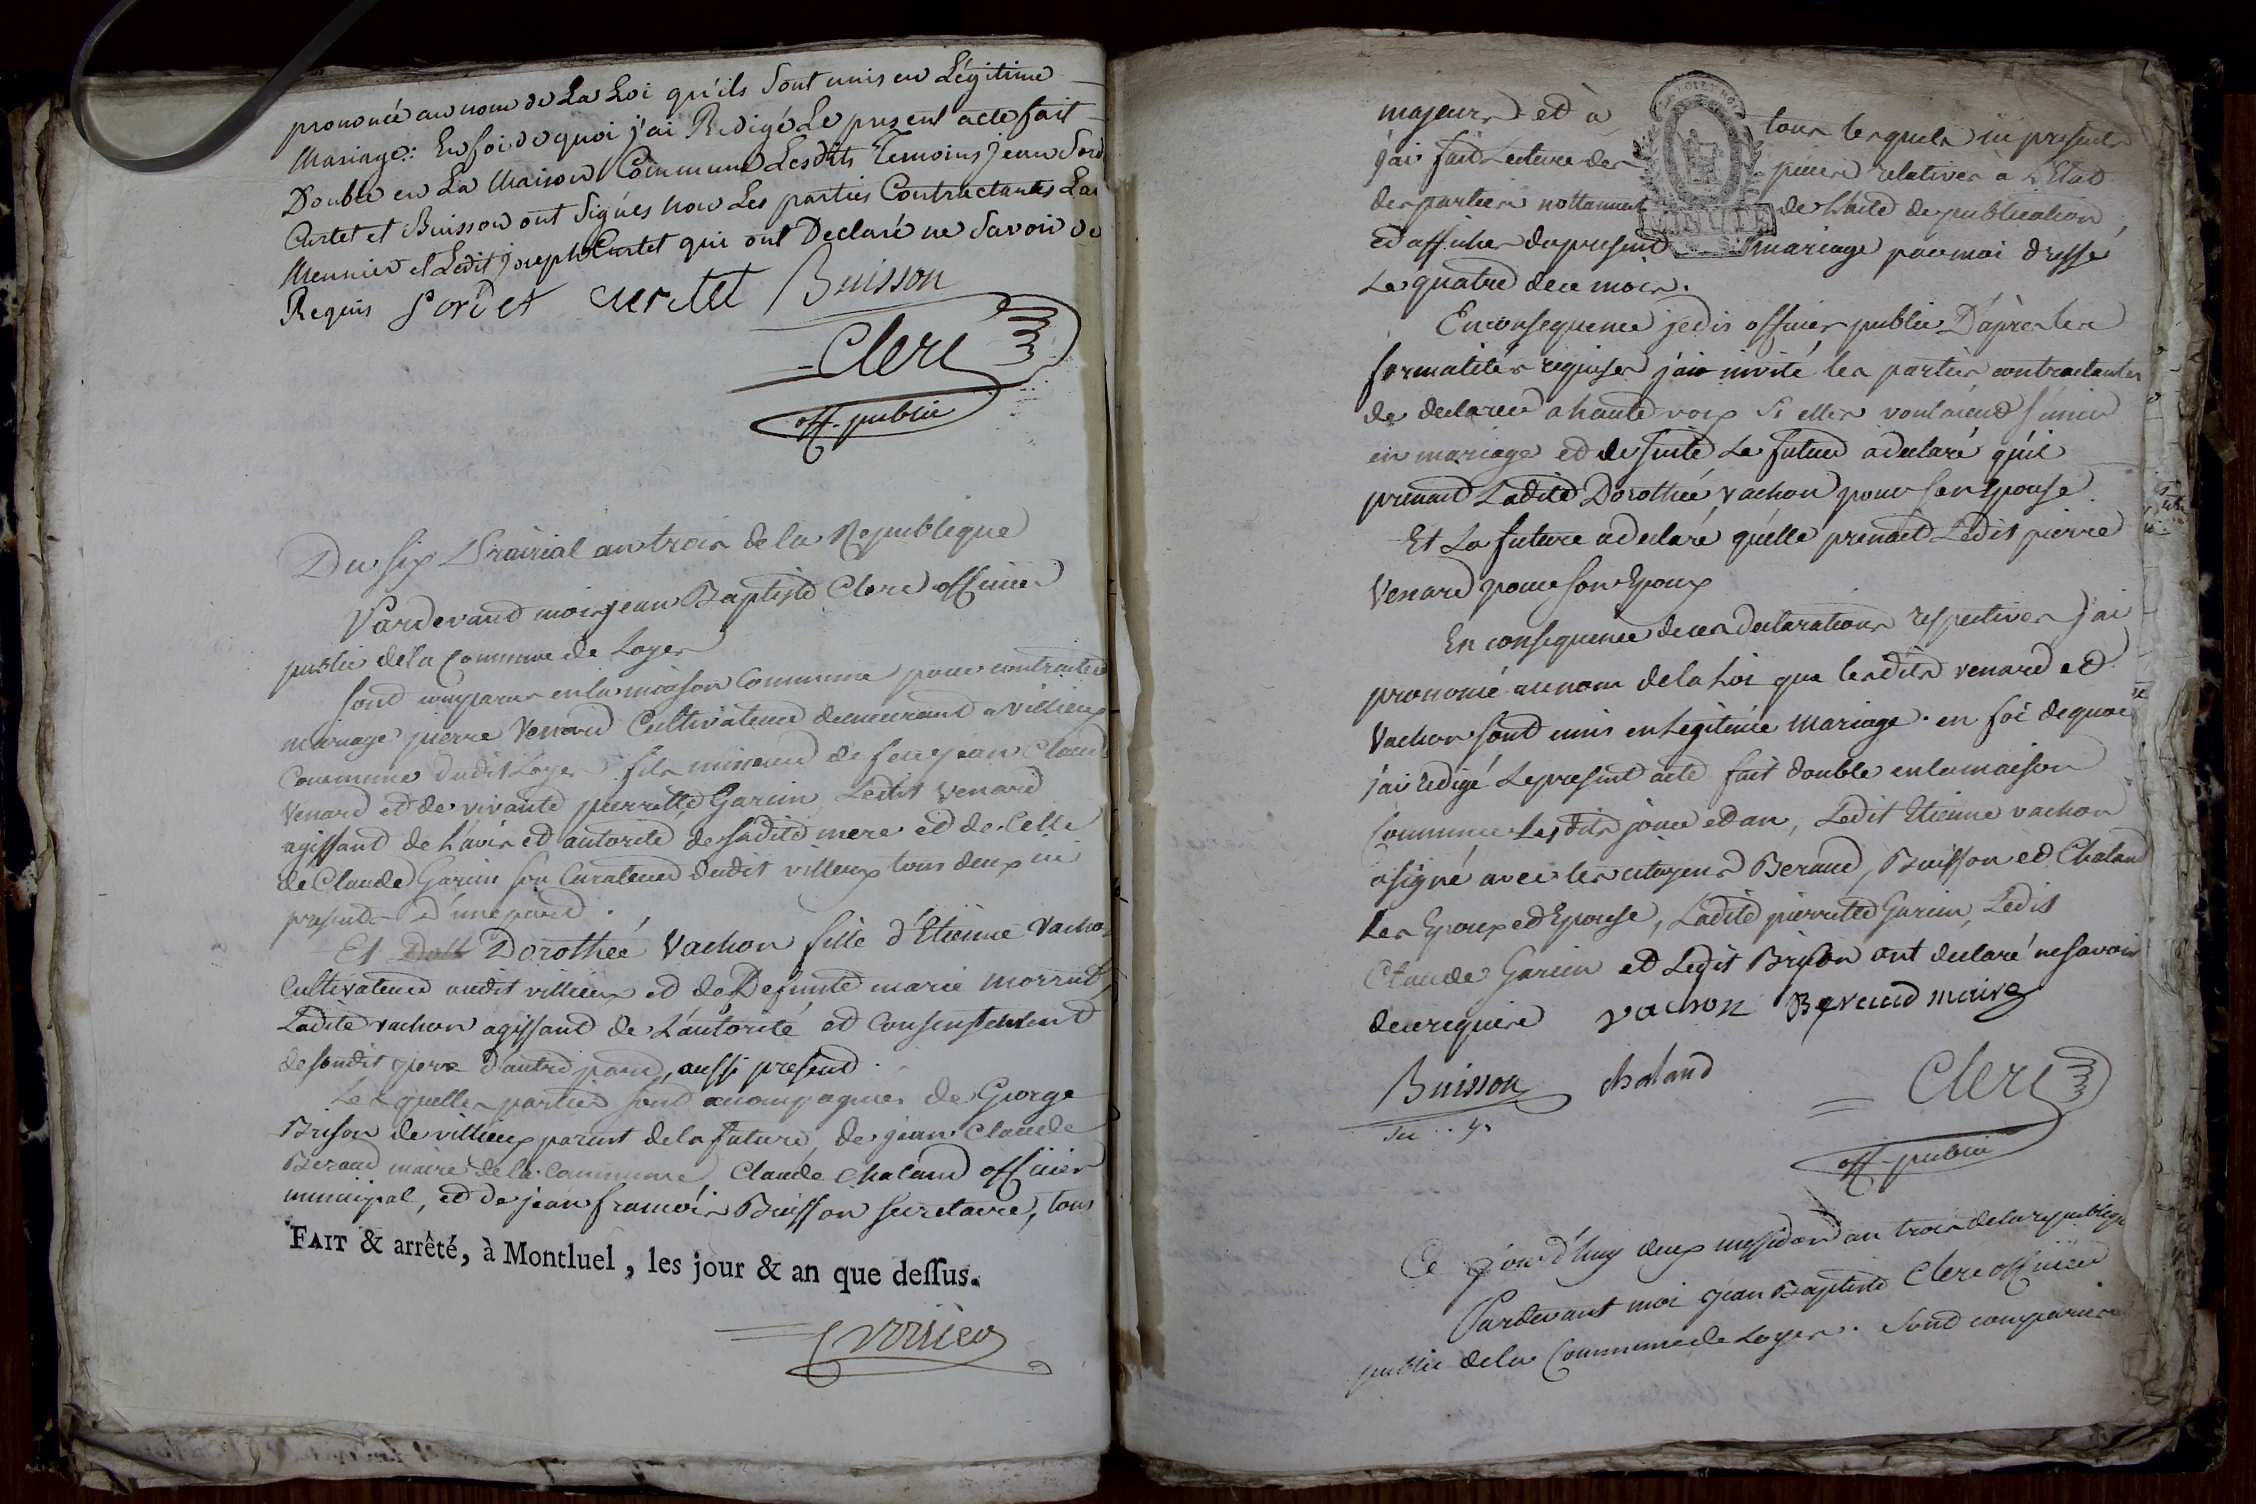 prononcé au nom de La Loi qu'ils Sont unis en Légitime
Mariage: En foi de quoi j'ai Rédigé Le present acte fait
Double en La Maison Commune Lesdits Temoins jean Sord
Curtet et Buisson ont Signés non Les parties Contractantes
Meunier et Ledit joseph Curtet qui ont Declaré ne Savoir de
Requis Sordet curtet Buisson
Clerc
off. public
Du six Prairial an trois de la Republique
Pardevand moi jean Baptiste Clerc officier
public de la Commune de Loyes
sont comparus en la maison Commune pour contracter
mariage pierre Venard Cultivateur demeurant a Villieux
Commune dudit Loyes fils mineur de feu jean Claude
Venard et de vivante pierrette Garcin Ledit Venard
agissant de L'avis et autorité de sadite mere et de Celle
de Claude Garcin son Curateur dudit villieux tous deux ici
presents d'une part.
Et Dorotheé Vachon fille d'Etienne Vachon
Cultivateur audit villieux et de Defunte marie
Ladite vachon agissant de L'autorité et Consentement
de sondit pere d'autre part, aussi present.
Lesquelles parties sont acompagnees de George
Brison de villieux parent de la future, de jean Claude
Beraud maire de la Commune, Claude Chaland officier
municipal, et de jean francois Buisson secretaire, tous
FAIT & arrêté, à Montluel, les jour & an que dessus.
majeurs et à tous lesquels ici presents
j'ai fait Lecture des pieces relatives a L'Etat
des parties nottamment de L'acte de publication
et affiches du present mariage par moi dressé
Le quatre de ce mois.
En consequence je dis officier public D'après les
formalités requises j'ai invité les parties contractantes
de declarer a haute voix Si elles vouloient S'unir
en mariage et de suite Le futur a declaré qu'il
prenait Ladite Dorotheé Vachon pour son Epouse.
Et La future a declaré qu'elle prenait Ledit pierre
Venard pour son Epoux
En consequence de ces declarations respectives j'ai
prononcé au nom de la Loi que lesdits venard et
Vachon sont unis en Legitime mariage. en foi de quoi
j'ai redigé Le present acte fait double en la maison
Commune Lesdits jour et an, Ledit Etienne vachon
a signé avec les citoyens Beraud, Buisson et Chaland
Les Epoux et Epouse, Ladite pierrette Garcin, Ledit
Claude Garcin et Ledit Brison ont declaré ne savoir
de ce requis vachon Beraud maire
Buisson chaland Clerc
off. public
Ce jourd'huy deux messidor an trois de la republique
Pardevant moi jean Baptiste Clerc officier
public de la Commune de Loyes. Sont comparus